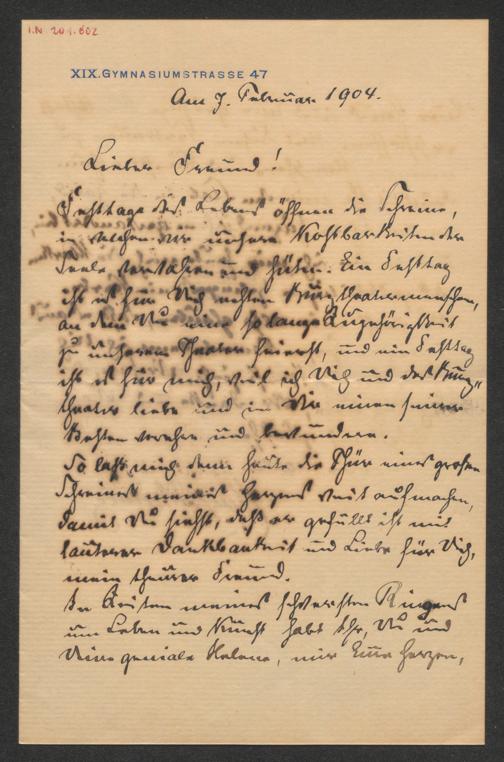 I.N 201.802
XIX. GYMNASIUMSTRASSE 47
Am 7. Februar 1904.
Lieber Freund!
Festtage des Lebens öffnen die Schreine,
in welchen wir unsere Kostbarkeiten der
Seele verwahren und hüten. Ein Festtag
ist es für Dich echten Burgtheatermenschen,
an dem Du eine so lange Zugehörigkeit
zu unserem Theater feierst, und ein Festtag
ist es für mich, weil ich Dich und das Burg-
theater liebe und in Dir einen seiner
Besten verehre und bewundere.
So laß mich denn heute die Thür eines großen
Schreines meines Herzens weit aufmachen,
damit Du siehst, daß er gefüllt ist mit
lauterer Dankbarkeit und Liebe für Dich,
mein theurer Freund.
In Zeiten meines schwersten Ringens
um Leben und Kunst habt Ihr, Du und
Deine geniale Helene, mir Eure Herzen,